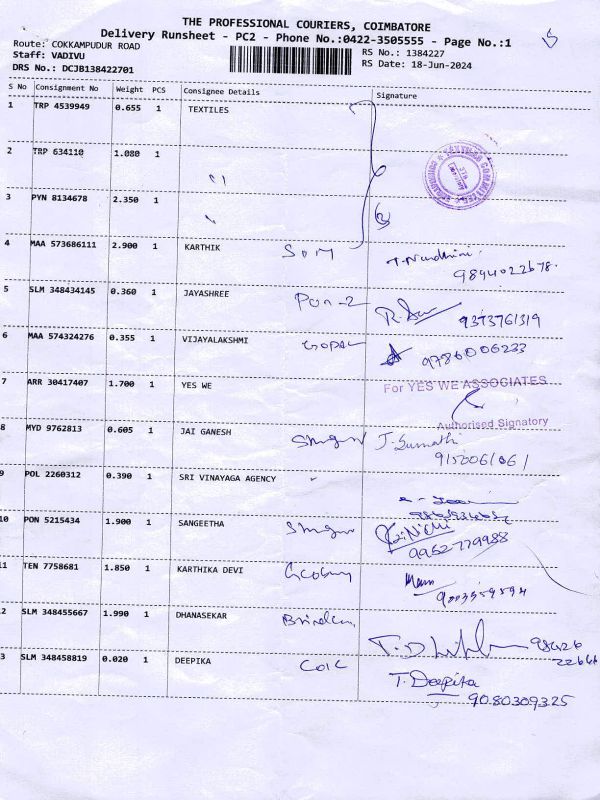 THE PROFESSIONAL COURIERS, COIMBATORE
Delivery Runsheet - PC2 - Phone No.:0422-3505555 - Page No.:1
Route: COKKAMPUDUR ROAD
Staff: VADIVU
DRS No.: DCJB138422701
RS No.: 1384227
RS Date: 18-Jun-2024
S No Consignment No Weight PCS Consignee Details Signature
1 TRP 4539949 0.655 1 TEXTILES
2 TRP 634110 1.080 1
3 PYN 8134678 2.350 1
4 MAA 573686111 2.900 1 KARTHIK
T. Nandhini
9894022678.
5 SLM 348434145 0.360 1 JAYASHREE Pon-2
9373761319
6 MAA 574324276 0.355 1 VIJAYALAKSHMI GOPAL
9786006233
7 ARR 30417407 1.700 1 YES WE
For YES WE ASSOCIATES
Authorised Signatory
8 MYD 9762813 0.605 1 JAI GANESH J. Sumathi
9 POL 2260312 0.390 1 SRI VINAYAGA AGENCY
10 PON 5215434 1.900 1 SANGEETHA
9962779988
11 TEN 7758681 1.850 1 KARTHIKA DEVI
9003559594
2 SLM 348455667 1.990 1 DHANASEKAR
98426
22666
3 SLM 348458819 0.020 1 DEEPIKA
T. Deepika
9080309325